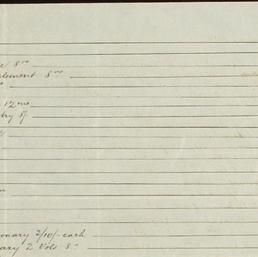 e 8vo
lement 8vo
12mo
try 8/
ionary 7/10/- each
ary 2 Vols 8vo